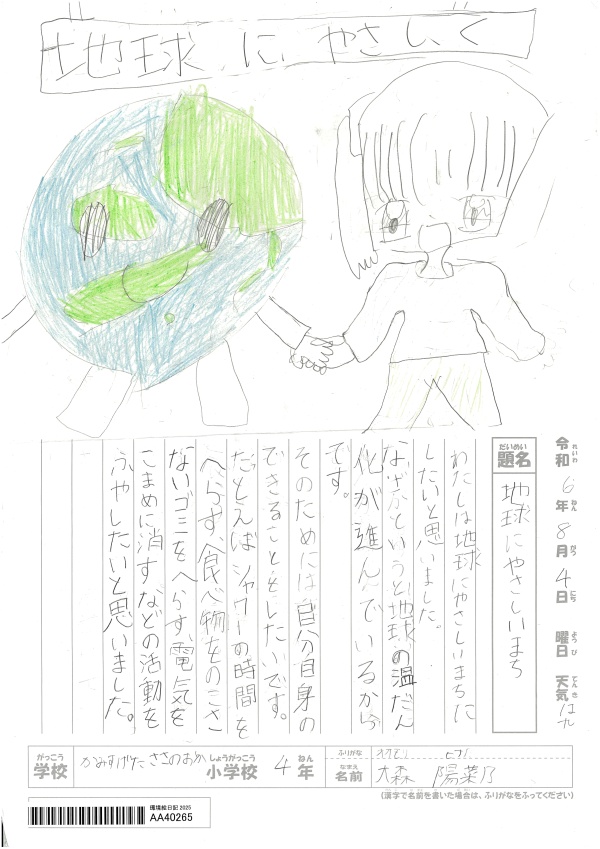 地球にやさしく
令和6年8月4日 曜日 天気 はれ
れいわ ねん がつ にち ようび てんき
だいめい
題名
地球にやさしいまち
わたしは地球にやさしいまちに
したいと思いました。
なぜかというと地球の温だん
化が進んでいるから
です。
そのためには自分自身の
できることをしたいです。
たとえばシャワーの時間を
へらす、食べ物をのこさ
ないゴミをへらす、電気を
こまめに消すなどの活動を
ふやしたいと思いました。
がっこう しょうがっこう ねん
学校 かみすげた ささのおか 小学校 4年
ふりがな
なまえ
名前 大森 陽菜乃
(漢字で名前を書いた場合は、ふりがなをふってください)
環境絵日記 2025
AA40265